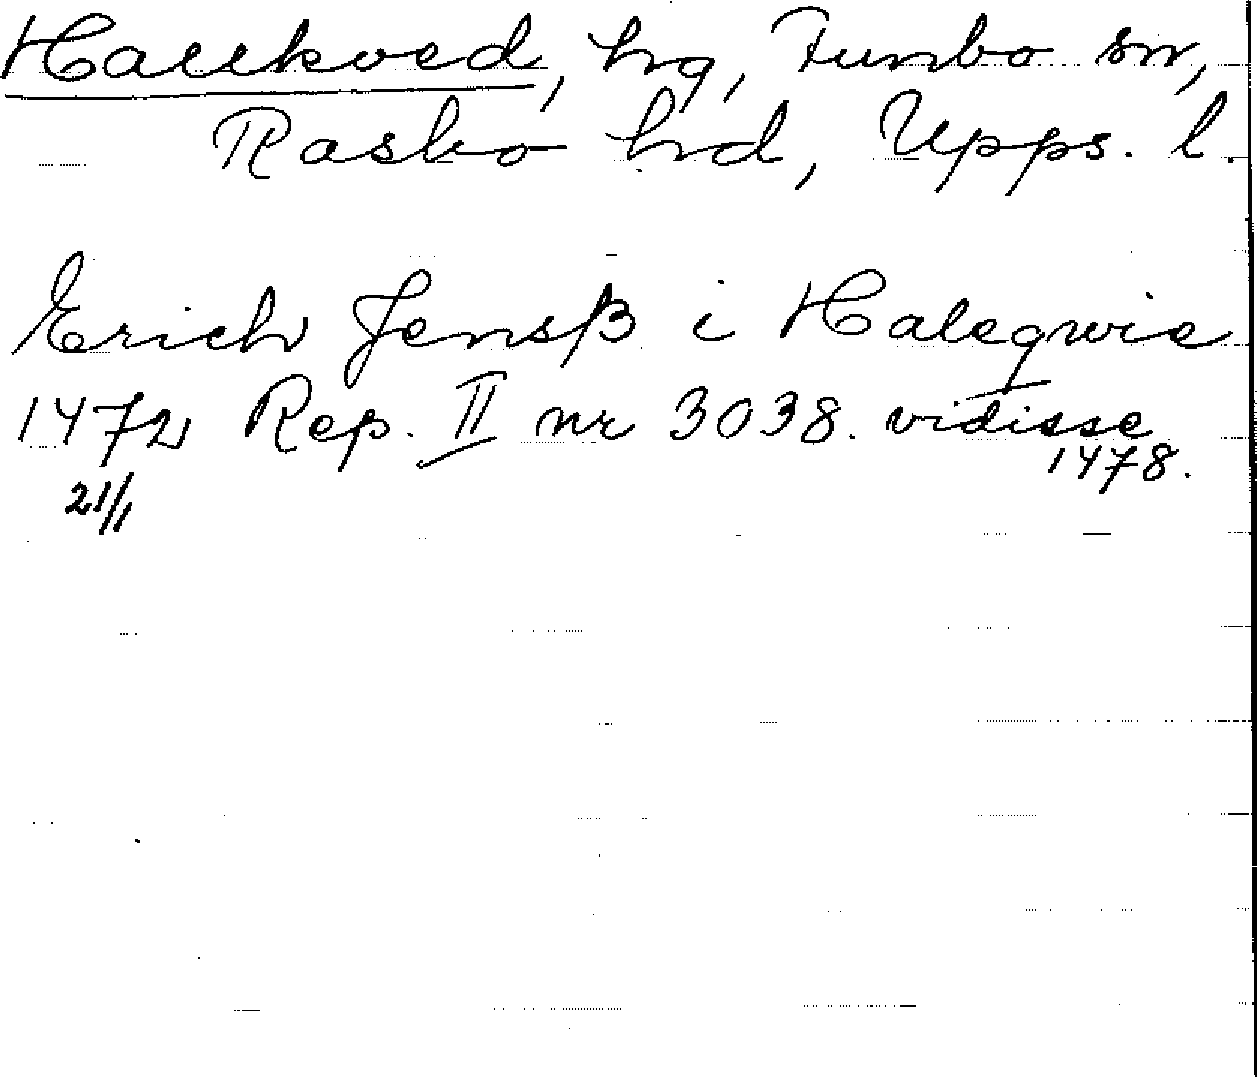 Hallkved, hg, Funbo sn,
Rasbo hd, Upps. l.
Erich Jensß i Haleqwie
1472 Rep. II nr 3038. vidisse
21/1 1478.